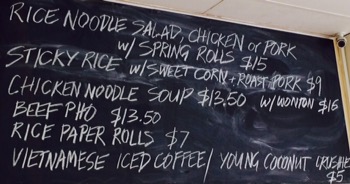 RICE NOODLE SALAD, CHICKEN or PORK
W/ SPRING ROLLS $15
STICKY RICE W/SWEET CORN + ROAST PORK $9
CHICKEN NOODLE SOUP $13,50 W/ WONTON $16
BEEF PHO $13.50
RICE PAPER ROLLS $7
VIETNAMESE ICED COFFEE/ YOUNG COCONUT CRUSHIE
$5